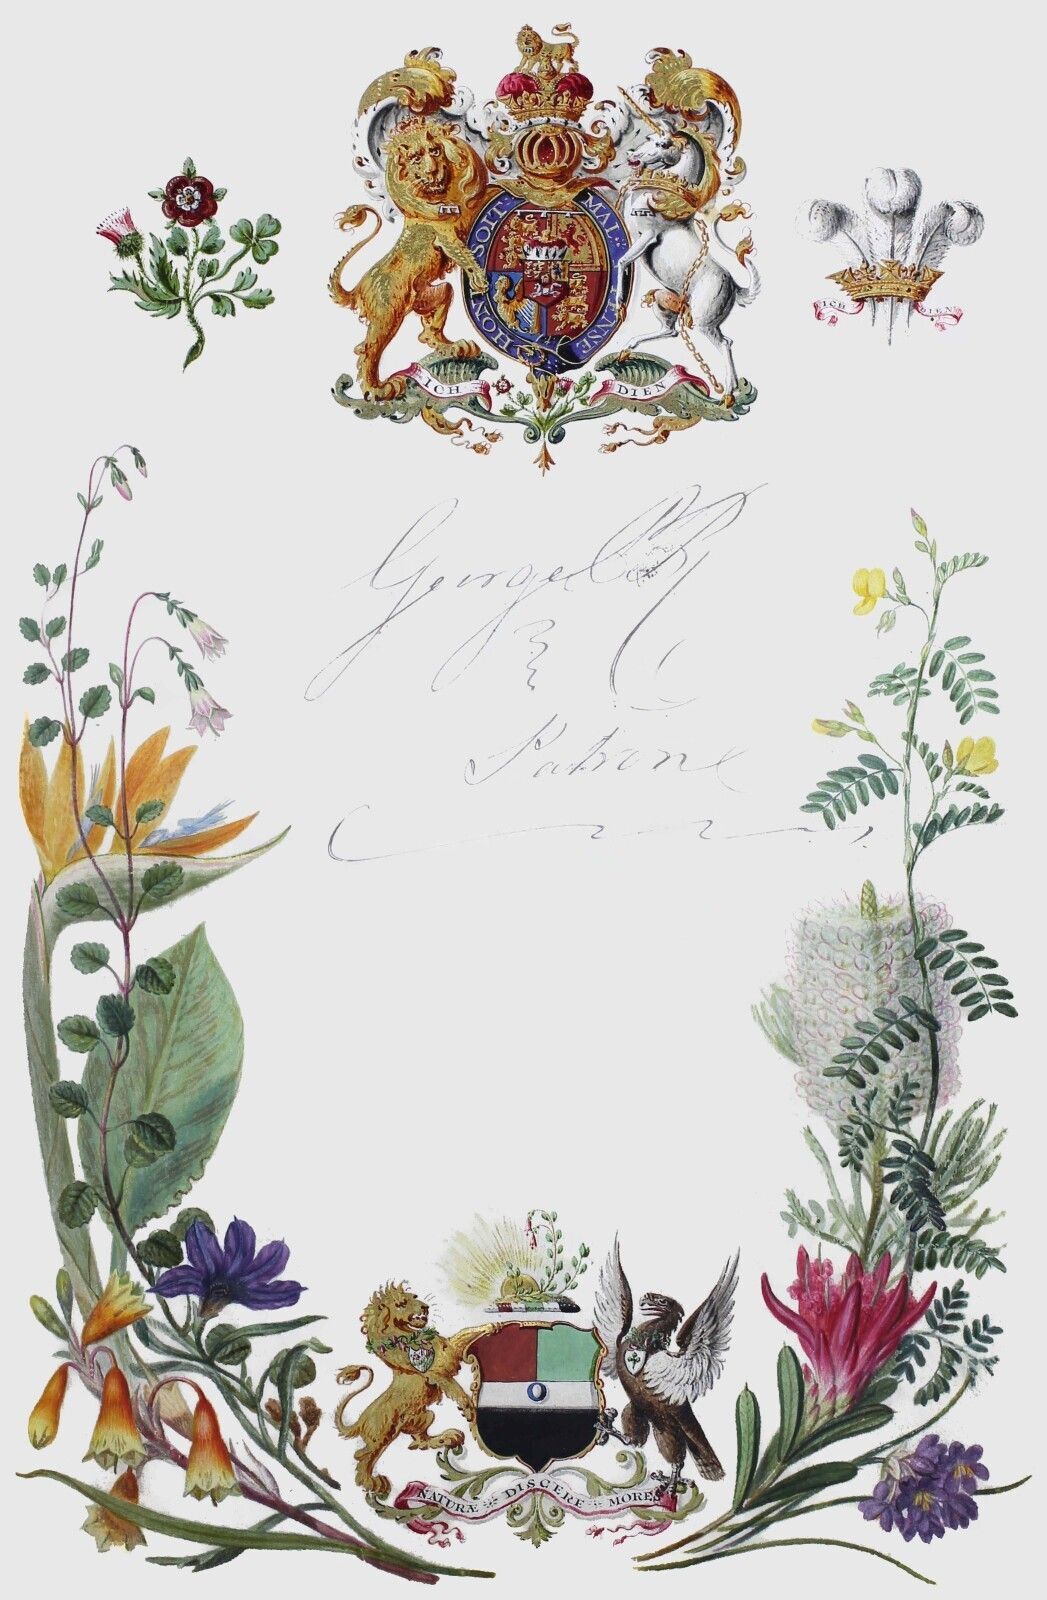 HON SOIT MAL
ICH DIEN
ICH DIEN
George P R
Patron
NATURÆ DISCERE MORES